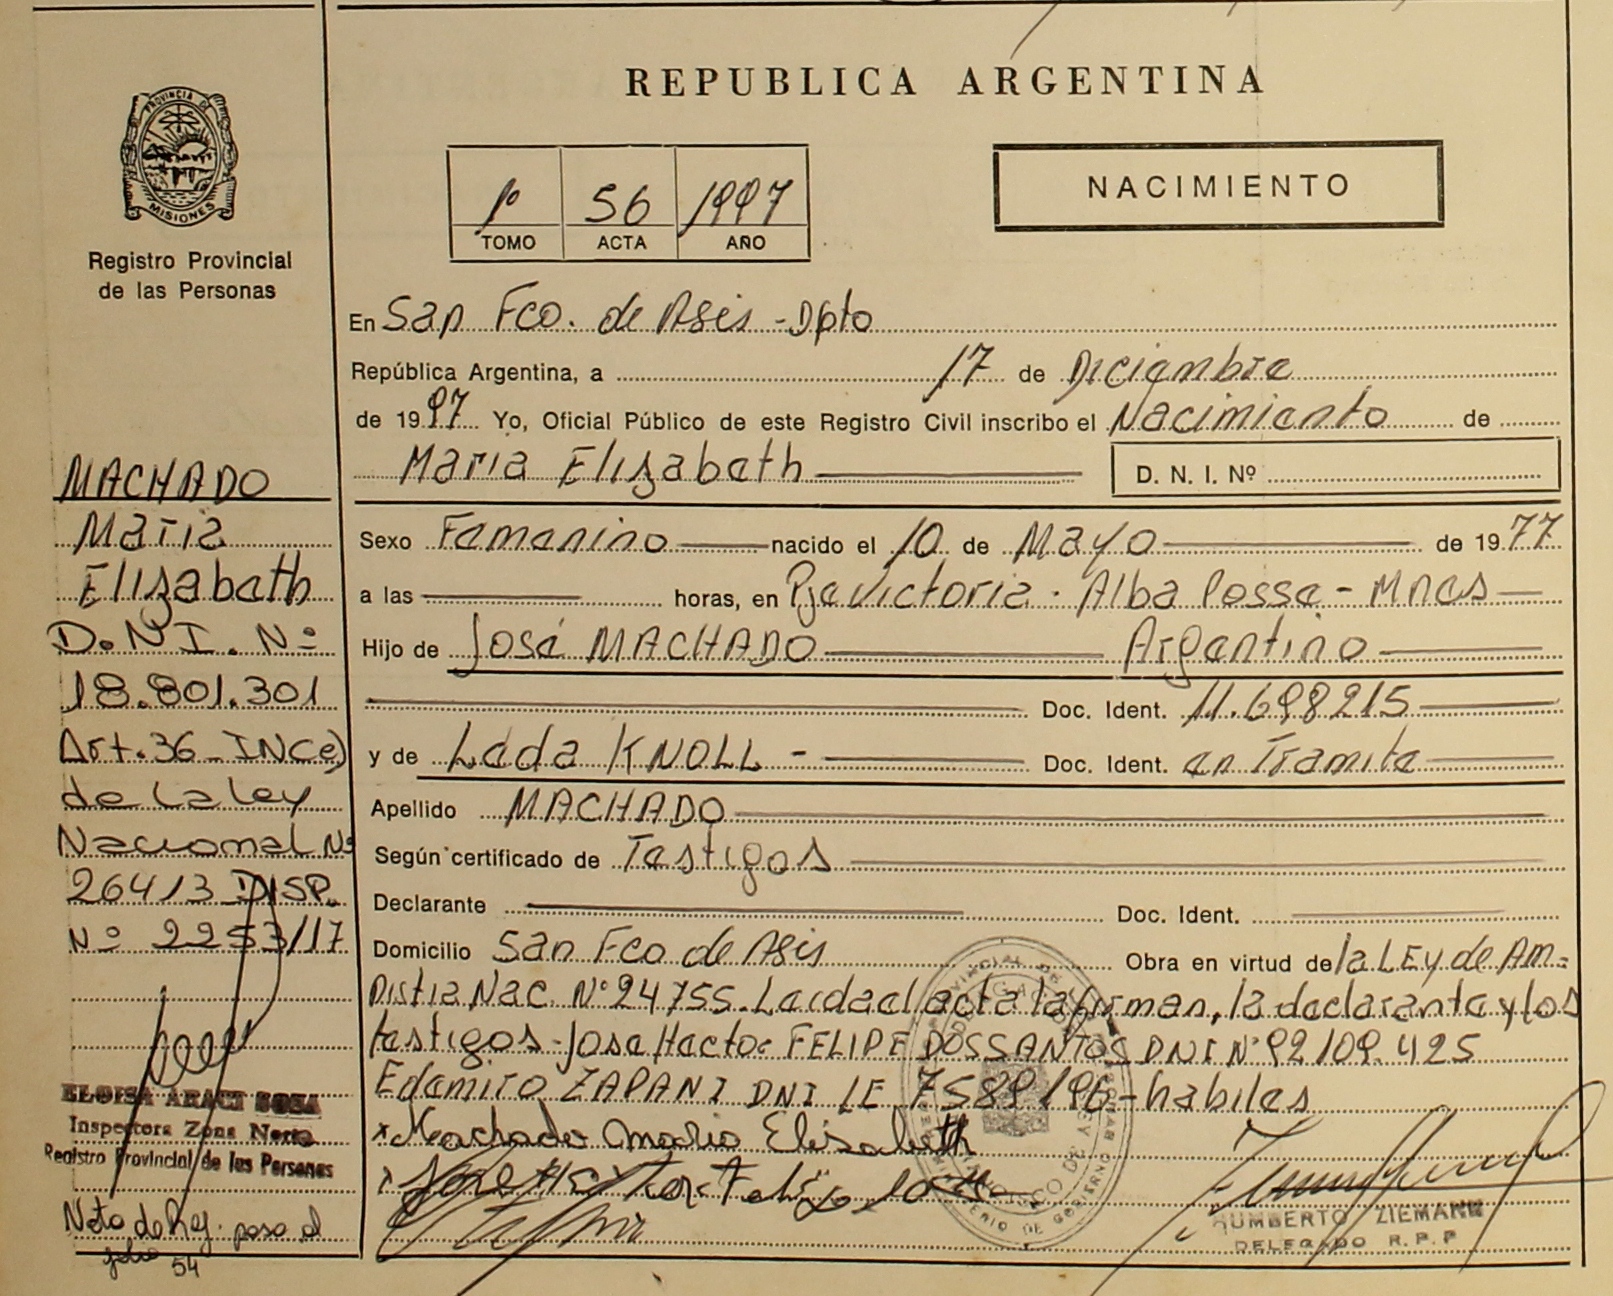 PROVINCIA DE
MISIONES
Registro Provincial
de las Personas
MACHADO
Maria
Elizabeth
D.N.I. Nº
18.801.301
Art. 36 - INC e)
de la ley
Nacional Nº
26413 DISP.
Nº 2253/17
ELOISA ARACI SOSA
Inspectora Zona Norte
Registro Provincial de las Personas
Nota de Ref. pasa al
folio 54
REPUBLICA ARGENTINA
1º 56 1997
TOMO ACTA AÑO
NACIMIENTO
En San Fco. de Asis - Dpto
República Argentina, a 17 de Diciembre
de 1997 Yo, Oficial Público de este Registro Civil inscribo el Nacimiento de
Maria Elizabeth D. N. I. Nº
Sexo Femenino nacido el 10 de Mayo de 1977
a las horas, en Pje Victoria - Alba Posse - Mnes
Hijo de José MACHADO Argentino
Doc. Ident. 11.698215
y de Leda KNOLL - Doc. Ident. en Tramite
Apellido MACHADO
Según certificado de Testigos
Declarante Doc. Ident.
Domicilio San Fco de Asis Obra en virtud de la LEy de Am=
nistia Nac. Nº 24755. Leida el acta la firman, la declarante y los
testigos - Jose Hector FELIPE DOSSANTOS DNI Nº 92109.425
Edemiro ZAPANI DNI LE 7589196 - habiles
x Machado Maria Elisabeth
HUMBERTO ZIEMANN
DELEGADO R. P. P